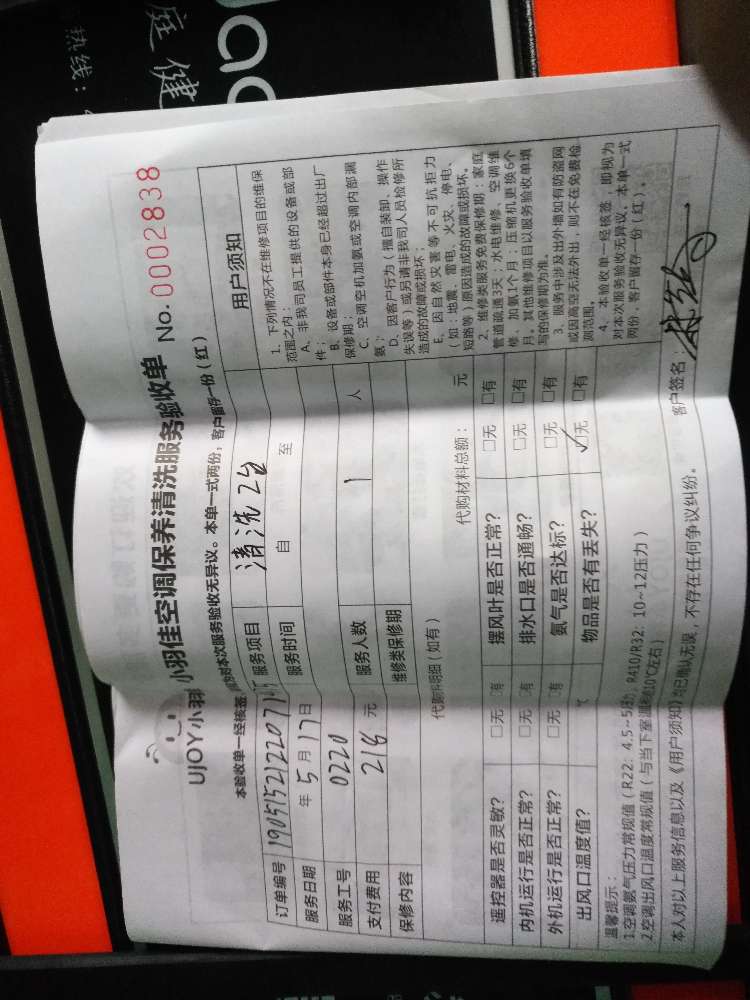 庭健
热线：
UJOY小羽
小羽佳空调保养清洗服务验收单 No: 0002838
本验收单一经核签，即视为对本次服务验收无异议。本单一式两份，客户留存一份（红）
订单编号 服务项目 清洗2台
服务日期 年 5 月 17 日 服务时间 自 至
服务工号 0220 服务人数 1 人
支付费用 218 元 维修类保修期
保修内容
代购材料明细（如有） 代购材料总额： 元
遥控器是否灵敏？ □无 □有 摆风叶是否正常？ □无 □有
内机运行是否正常？ □无 □有 排水口是否通畅？ □无 □有
外机运行是否正常？ □无 □有 氨气是否达标？ □无 □有
出风口温度值？ ℃ 物品是否有丢失？ ☑无 □有
用户须知
1、下列情况不在维修项目的维保
范围之内：
A、非我司员工提供的设备或部
件；
B、设备或部件本身已经超过出厂
保修期；
C、空调空机加氨或空调内部漏
氨；
D、因客户行为（擅自装卸、操作
失误等）或另请非我司人员检修所
造成的故障或损坏；
E、因自然灾害等不可抗拒力
（如：地震、雷电、火灾、停电、
短路等）原因造成的故障或损坏。
2、维修类服务免费保修期：家庭
管道疏通3天；水电维修、空调维
修、加氨1个月；压缩机更换6个
月。其他维修项目以服务验收单填
写的保修期为准。
3、服务中涉及出外墙如有防盗网
或因高空无法外出，则不在免费检
测范围。
4、本验收单一经核签，即视为
对本次服务验收无异议。本单一式
两份，客户留存一份（红）。
温馨提示：
1.空调氨气压力常规值（R22：4.5~5压力，R410/R32：10~12压力）
2.空调出风口温度常规值（与当下室温相差10℃左右）
本人对以上服务信息以及《用户须知》均已确认无误，不存在任何争议纠纷。 客户签名：